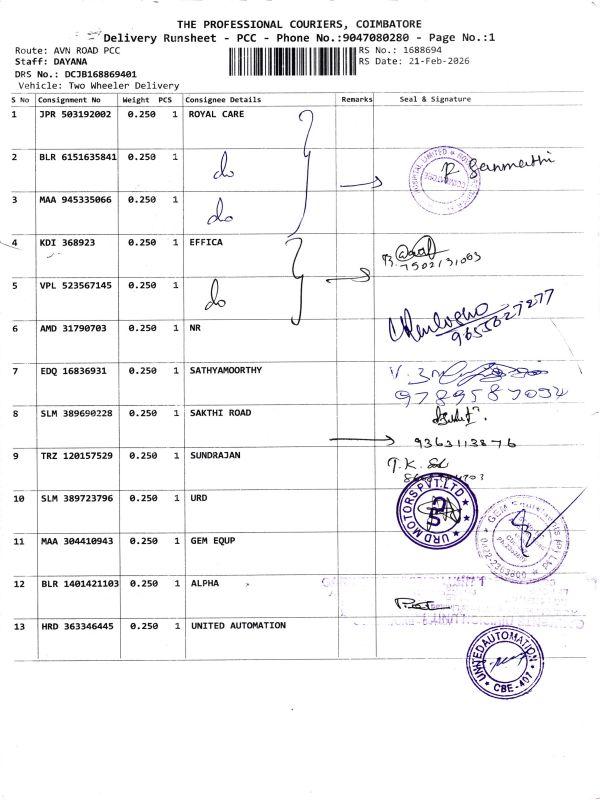 THE PROFESSIONAL COURIERS, COIMBATORE
Delivery Runsheet - PCC - Phone No.:9047080280 - Page No.:1
Route: AVN ROAD PCC
RS No.: 1688694
Staff: DAYANA
RS Date: 21-Feb-2026
DRS No.: DCJB168869401
Vehicle: Two Wheeler Delivery
S No Consignment No Weight PCS Consignee Details Remarks Seal & Signature
1 JPR 503192002 0.250 1 ROYAL CARE
2 BLR 6151635841 0.250 1 do
3 MAA 945335066 0.250 1 do
4 KDI 368923 0.250 1 EFFICA
7502131063
5 VPL 523567145 0.250 1 do
6 AMD 31790703 0.250 1 NR
9655627277
7 EDQ 16836931 0.250 1 SATHYAMOORTHY
9789587094
8 SLM 389690228 0.250 1 SAKTHI ROAD
9363113876
9 TRZ 120157529 0.250 1 SUNDRAJAN
T.K.
10 SLM 389723796 0.250 1 URD
URD MOTORS PVT.LTD
11 MAA 304410943 0.250 1 GEM EQUP
12 BLR 1401421103 0.250 1 ALPHA
13 HRD 363346445 0.250 1 UNITED AUTOMATION
UNITED AUTOMATION
CBE-407